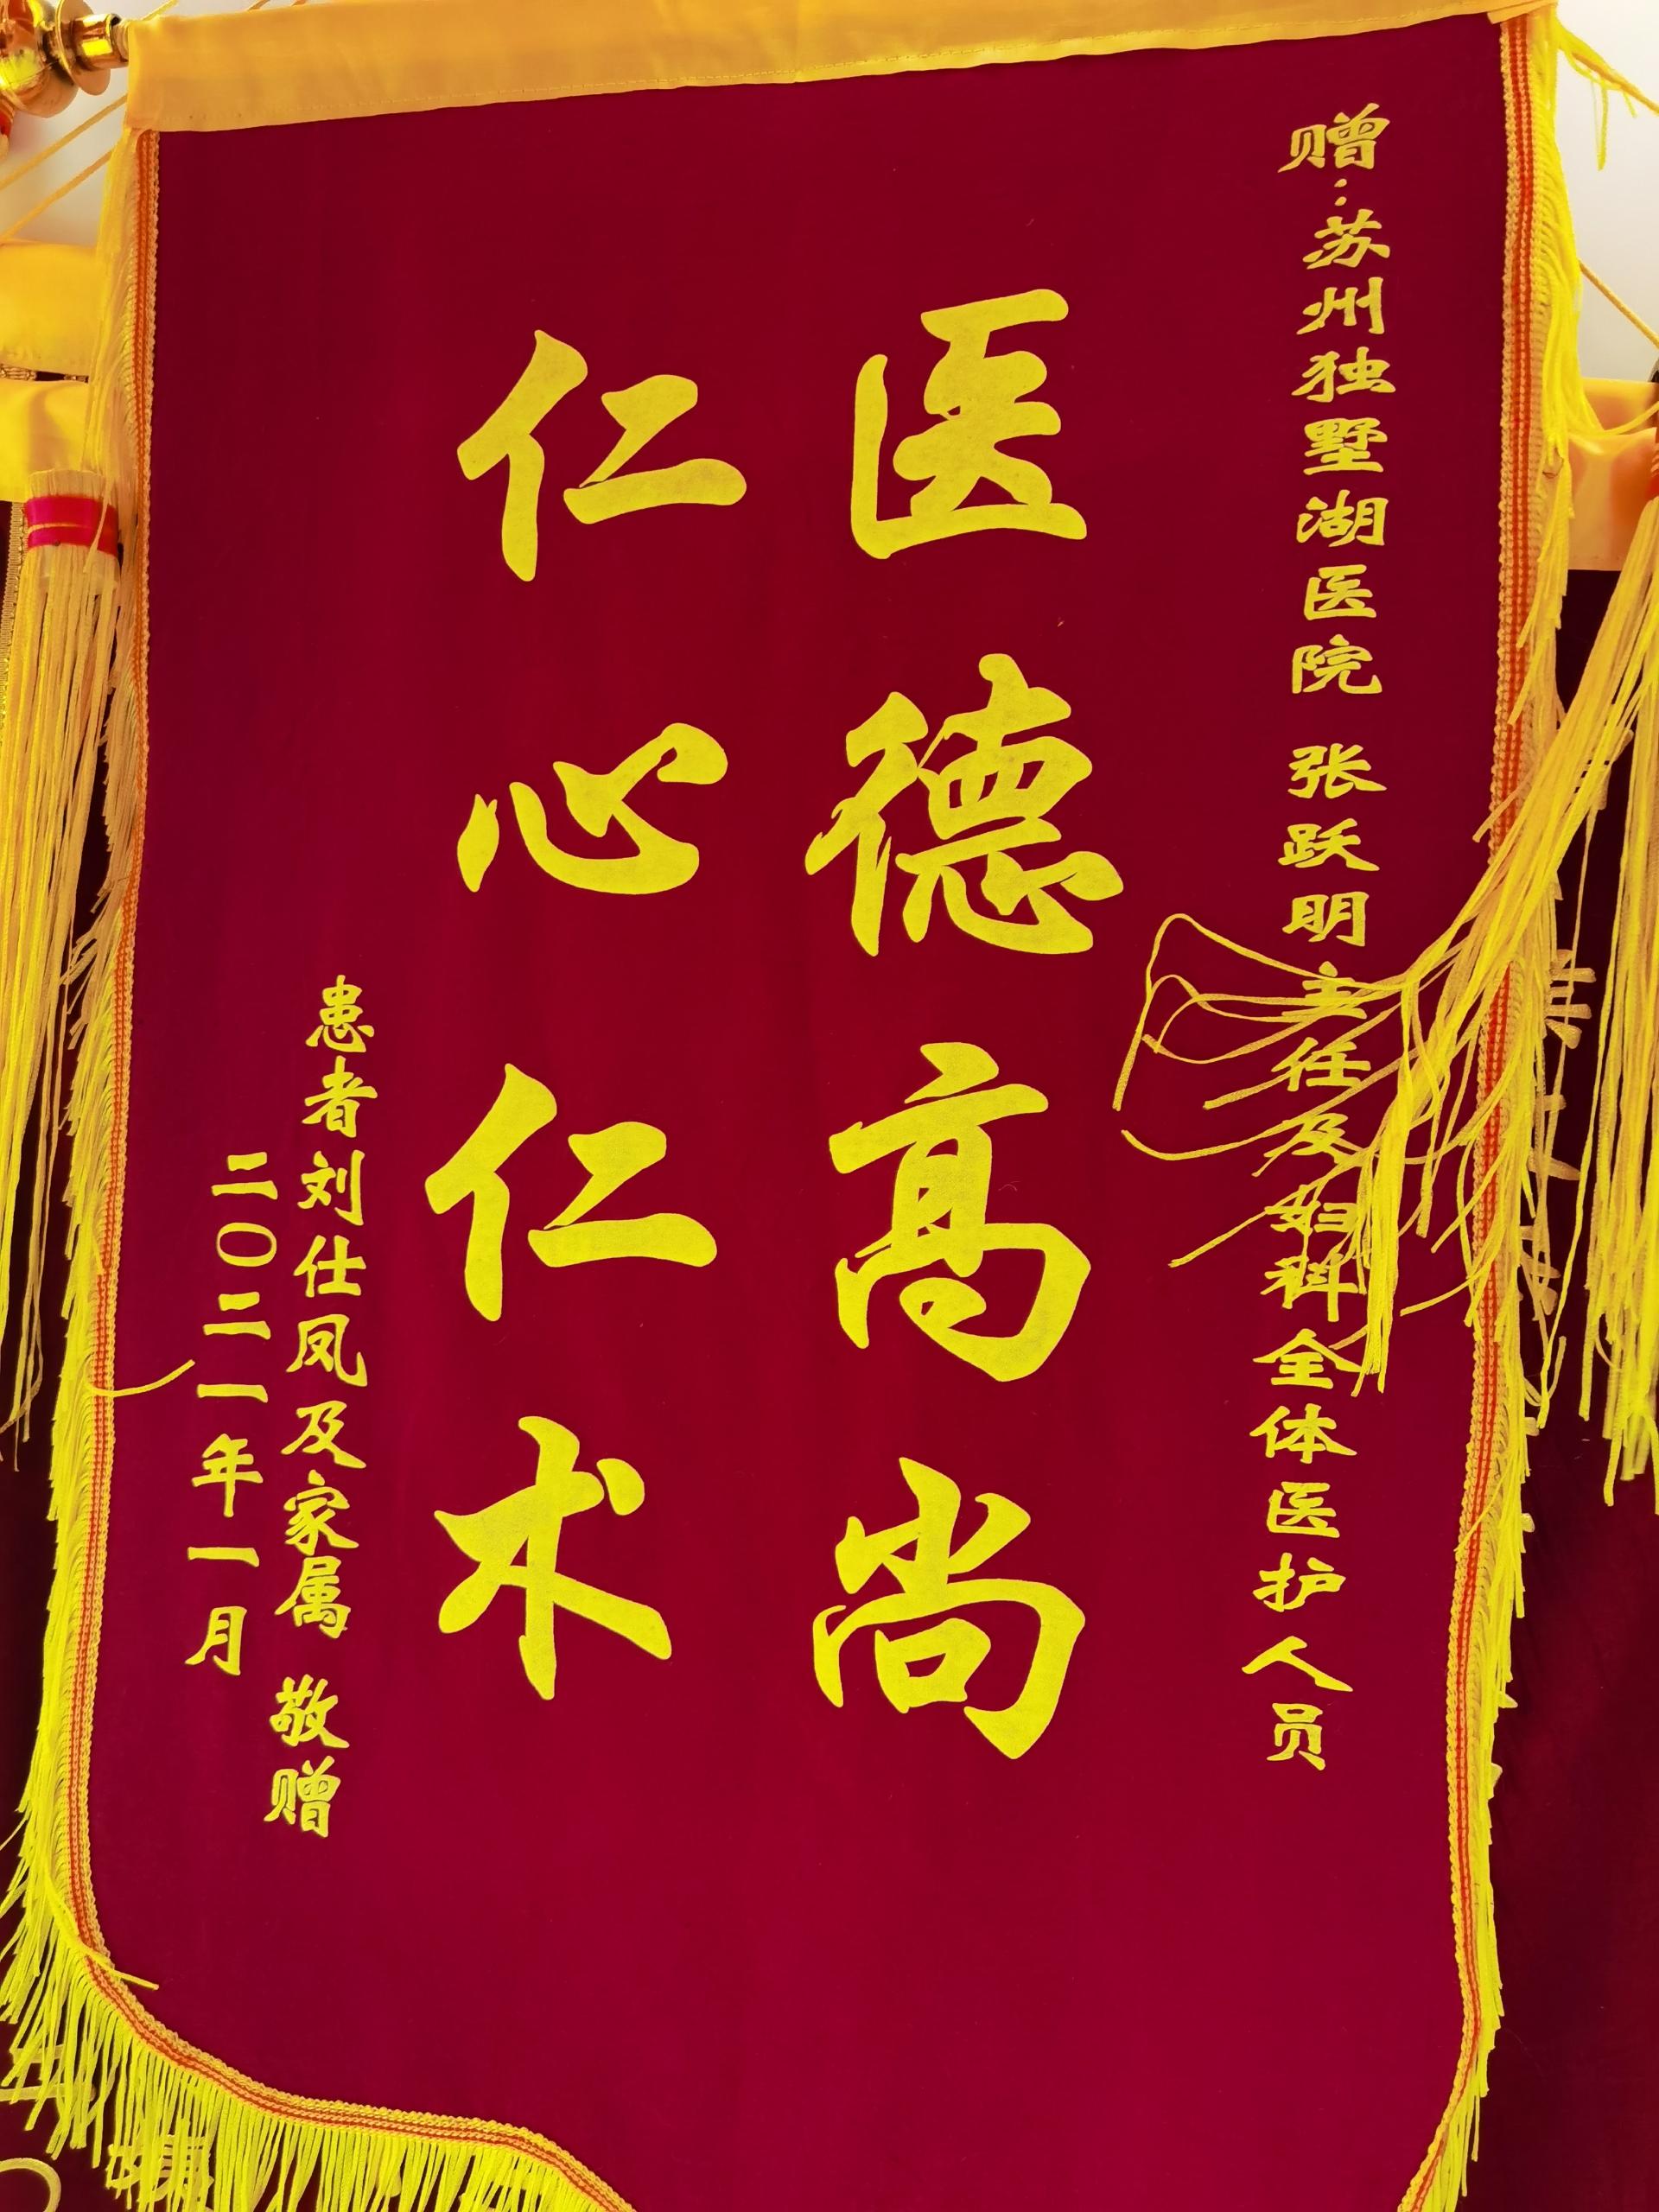 赠：苏州独墅湖医院 张跃明主任及妇科全体医护人员
医德高尚
仁心仁术
患者刘仕凤及家属 敬赠
二〇二一年一月